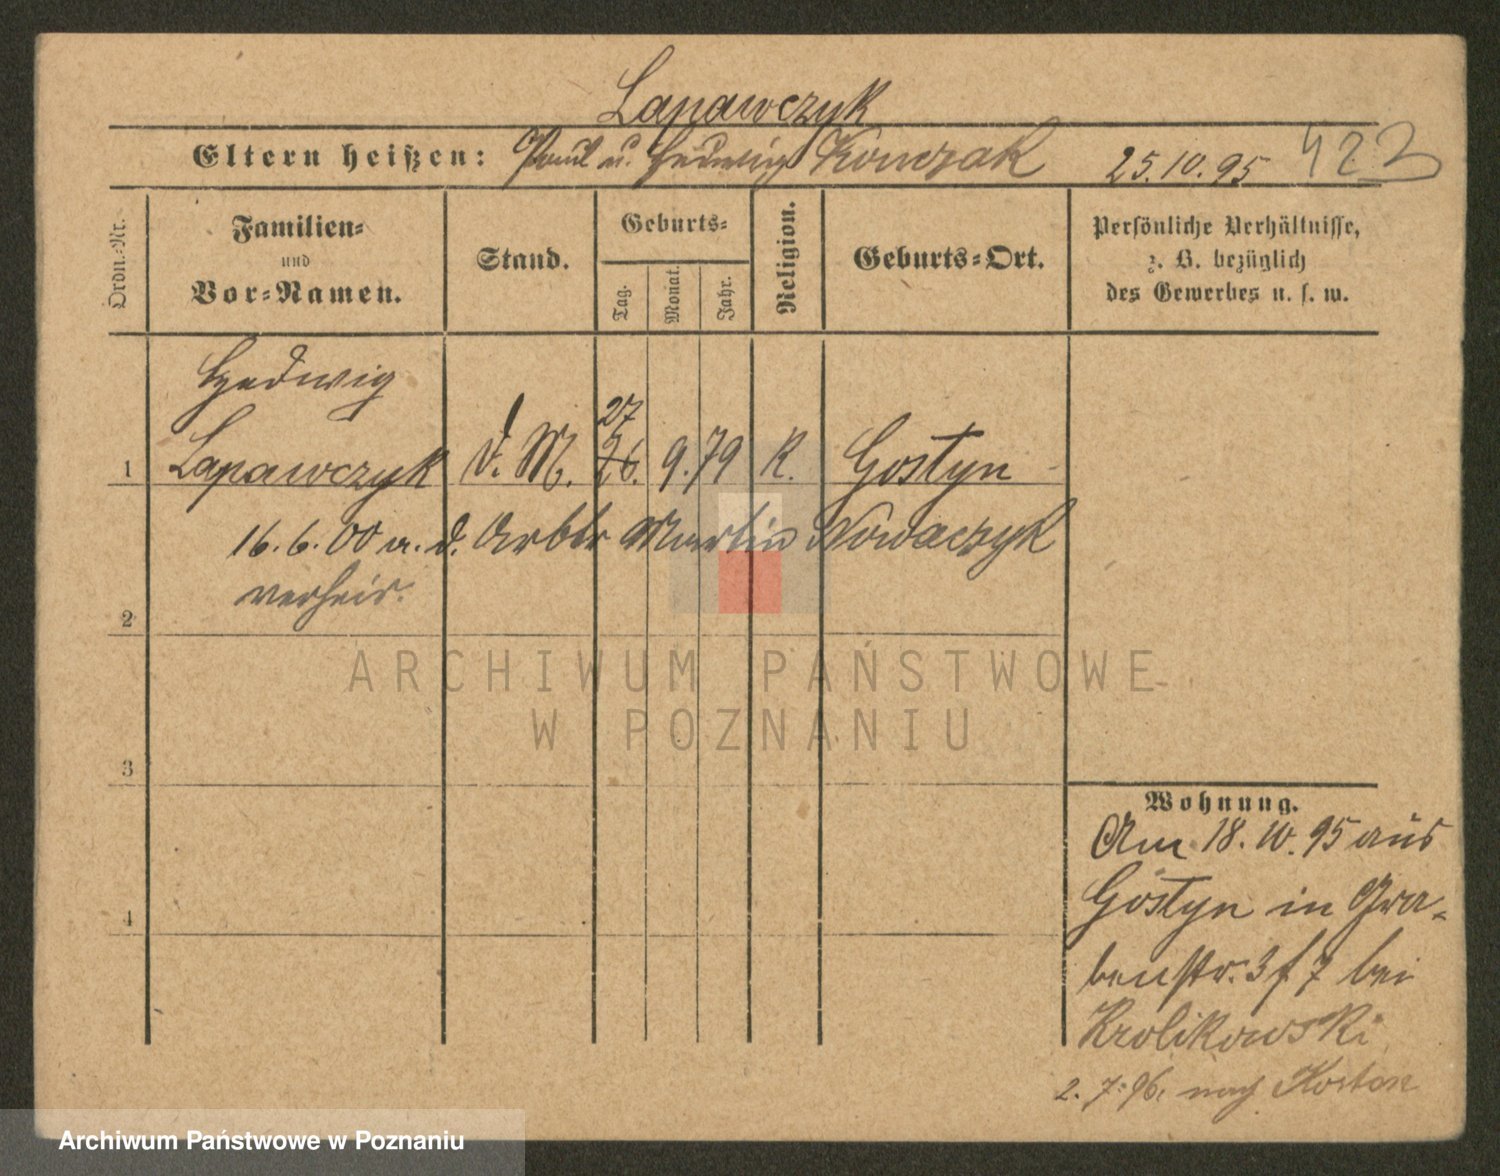 Lapawczyk
Eltern heißen: Paul u. Hedwig Konczak 25.10.95 423
Ordn.-Nr.
Familien-
und
Vor-Namen.
Stand.
Geburts-
Tag.
Monat.
Jahr.
Religion.
Geburts-Ort.
Persönliche Verhältnisse,
z. B. bezüglich
des Gewerbes u. s. w.
Hedwig
27
1 Lapawczyk d. M. 26. 9. 79 K. Gostyn
16. 6. 00 a. d. Arbtr Martin Nowaczyk
verheir.
2
3
4
Wohnung.
Am 18. 10. 95 aus
Gostyn in Gra-
benstr. 3 f 7 bei
Krolikowski
2. 7. 96. nach Kosten
ARCHIWUM PAŃSTWOWE
W POZNANIU
Archiwum Państwowe w Poznaniu